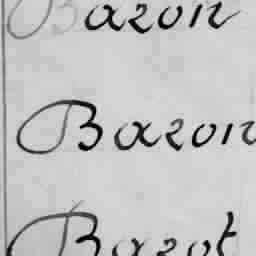 Bazon
Bazon
Bazot